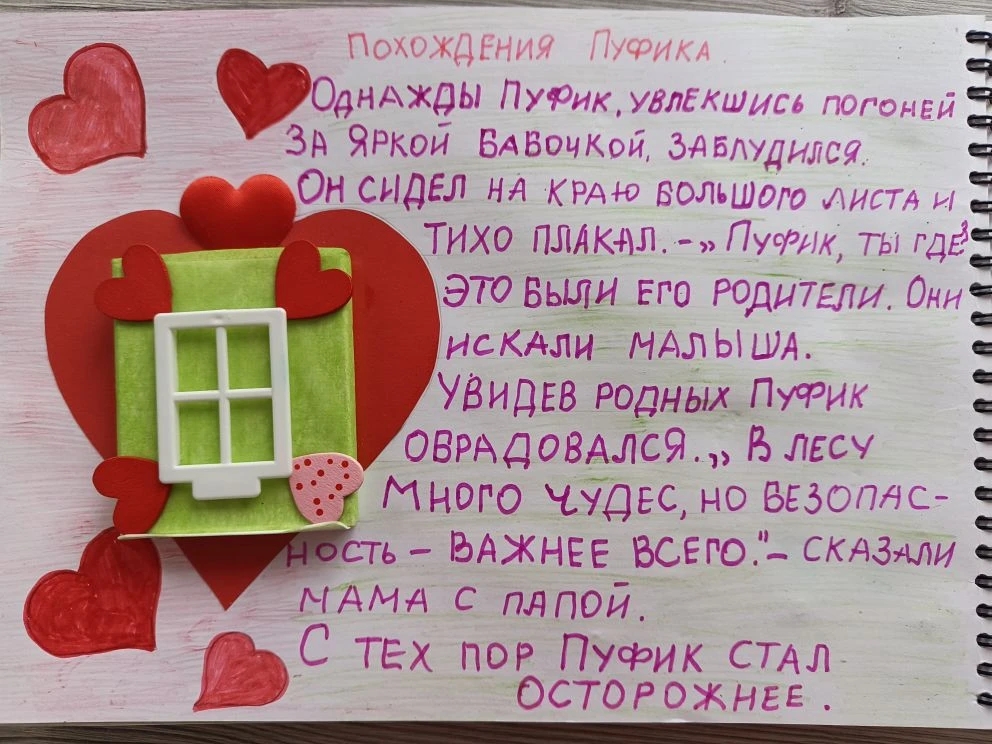 ПОХОЖДЕНИЯ ПУФИКА.
ОДНАЖДЫ ПУФИК, УВЛЕКШИСЬ ПОГОНЕЙ
ЗА ЯРКОЙ БАБОЧКОЙ, ЗАБЛУДИЛСЯ.
ОН СИДЕЛ НА КРАЮ БОЛЬШОГО ЛИСТА И
ТИХО ПЛАКАЛ. - „ ПУФИК, ТЫ ГДЕ?
ЭТО БЫЛИ ЕГО РОДИТЕЛИ. ОНИ
ИСКАЛИ МАЛЫША.
УВИДЕВ РОДНЫХ ПУФИК
ОБРАДОВАЛСЯ. „ В ЛЕСУ
МНОГО ЧУДЕС, НО БЕЗОПАС-
НОСТЬ – ВАЖНЕЕ ВСЕГО." – СКАЗАЛИ
МАМА С ПАПОЙ.
С ТЕХ ПОР ПУФИК СТАЛ
ОСТОРОЖНЕЕ.